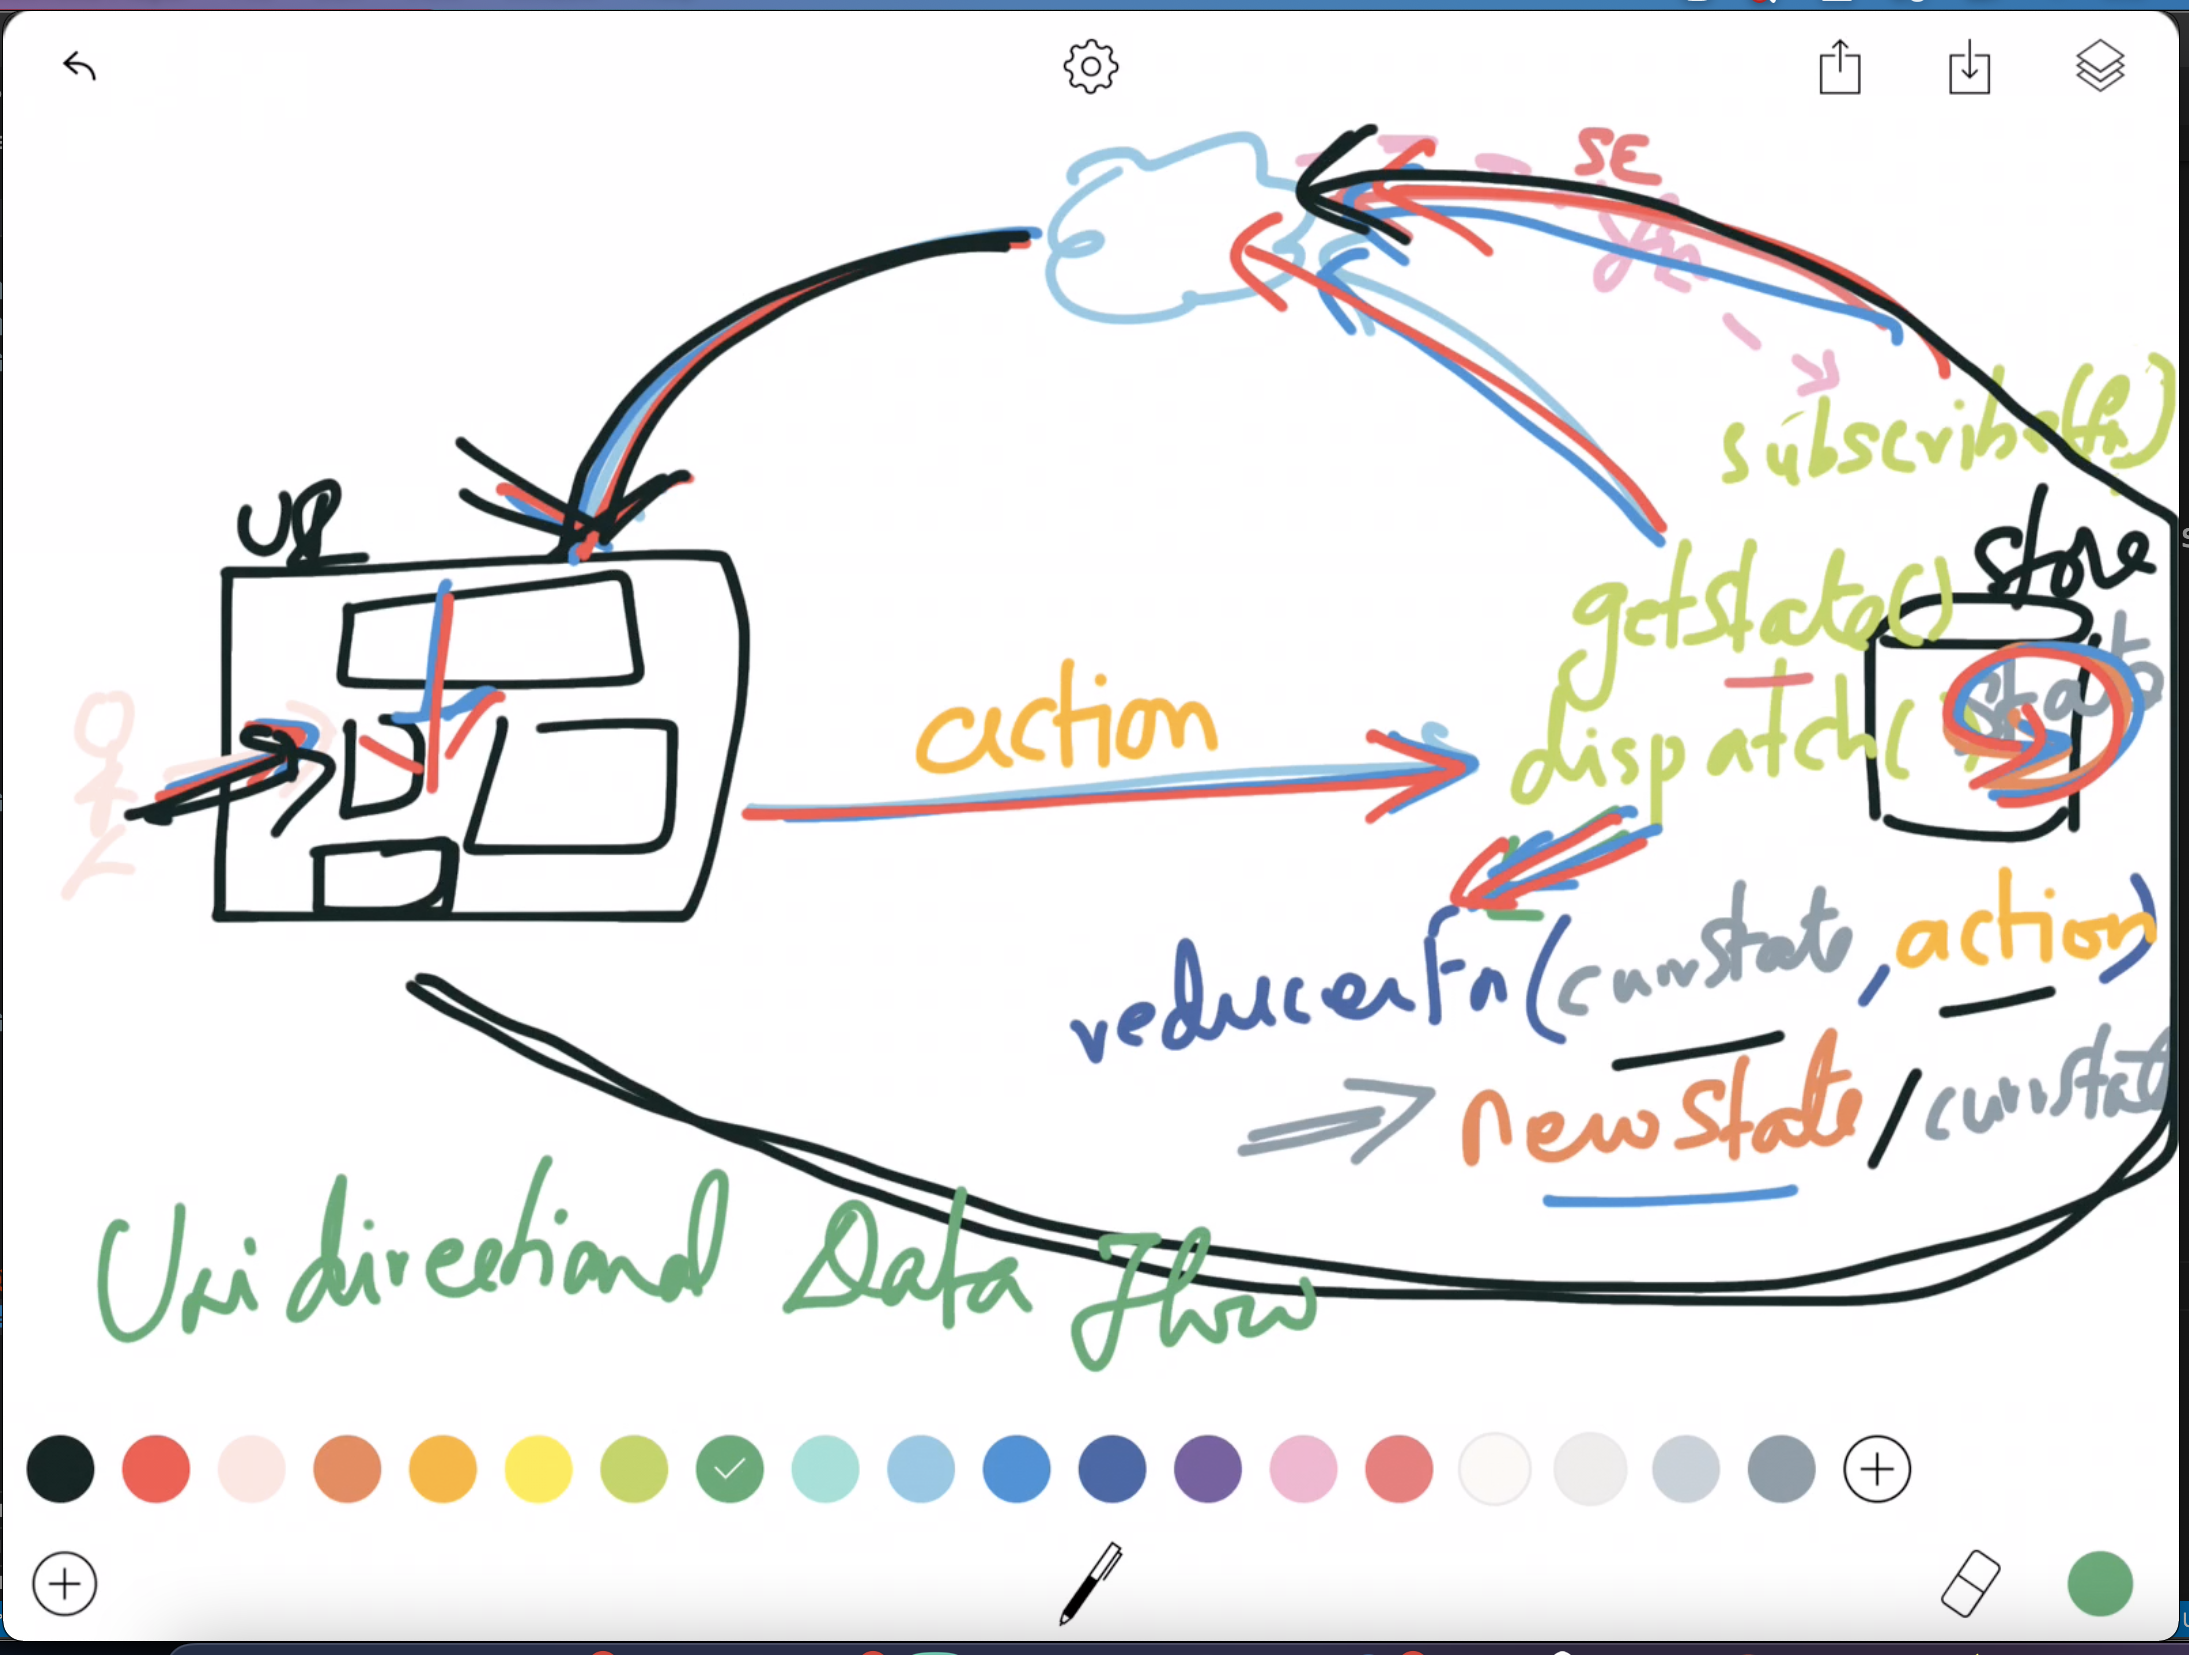 SE
subscribe(fn)
UI
store
getState()
state
action
dispatch( )
reducerFn(currState, action)
⇒ newState/currState
Unidirectional Data Flow